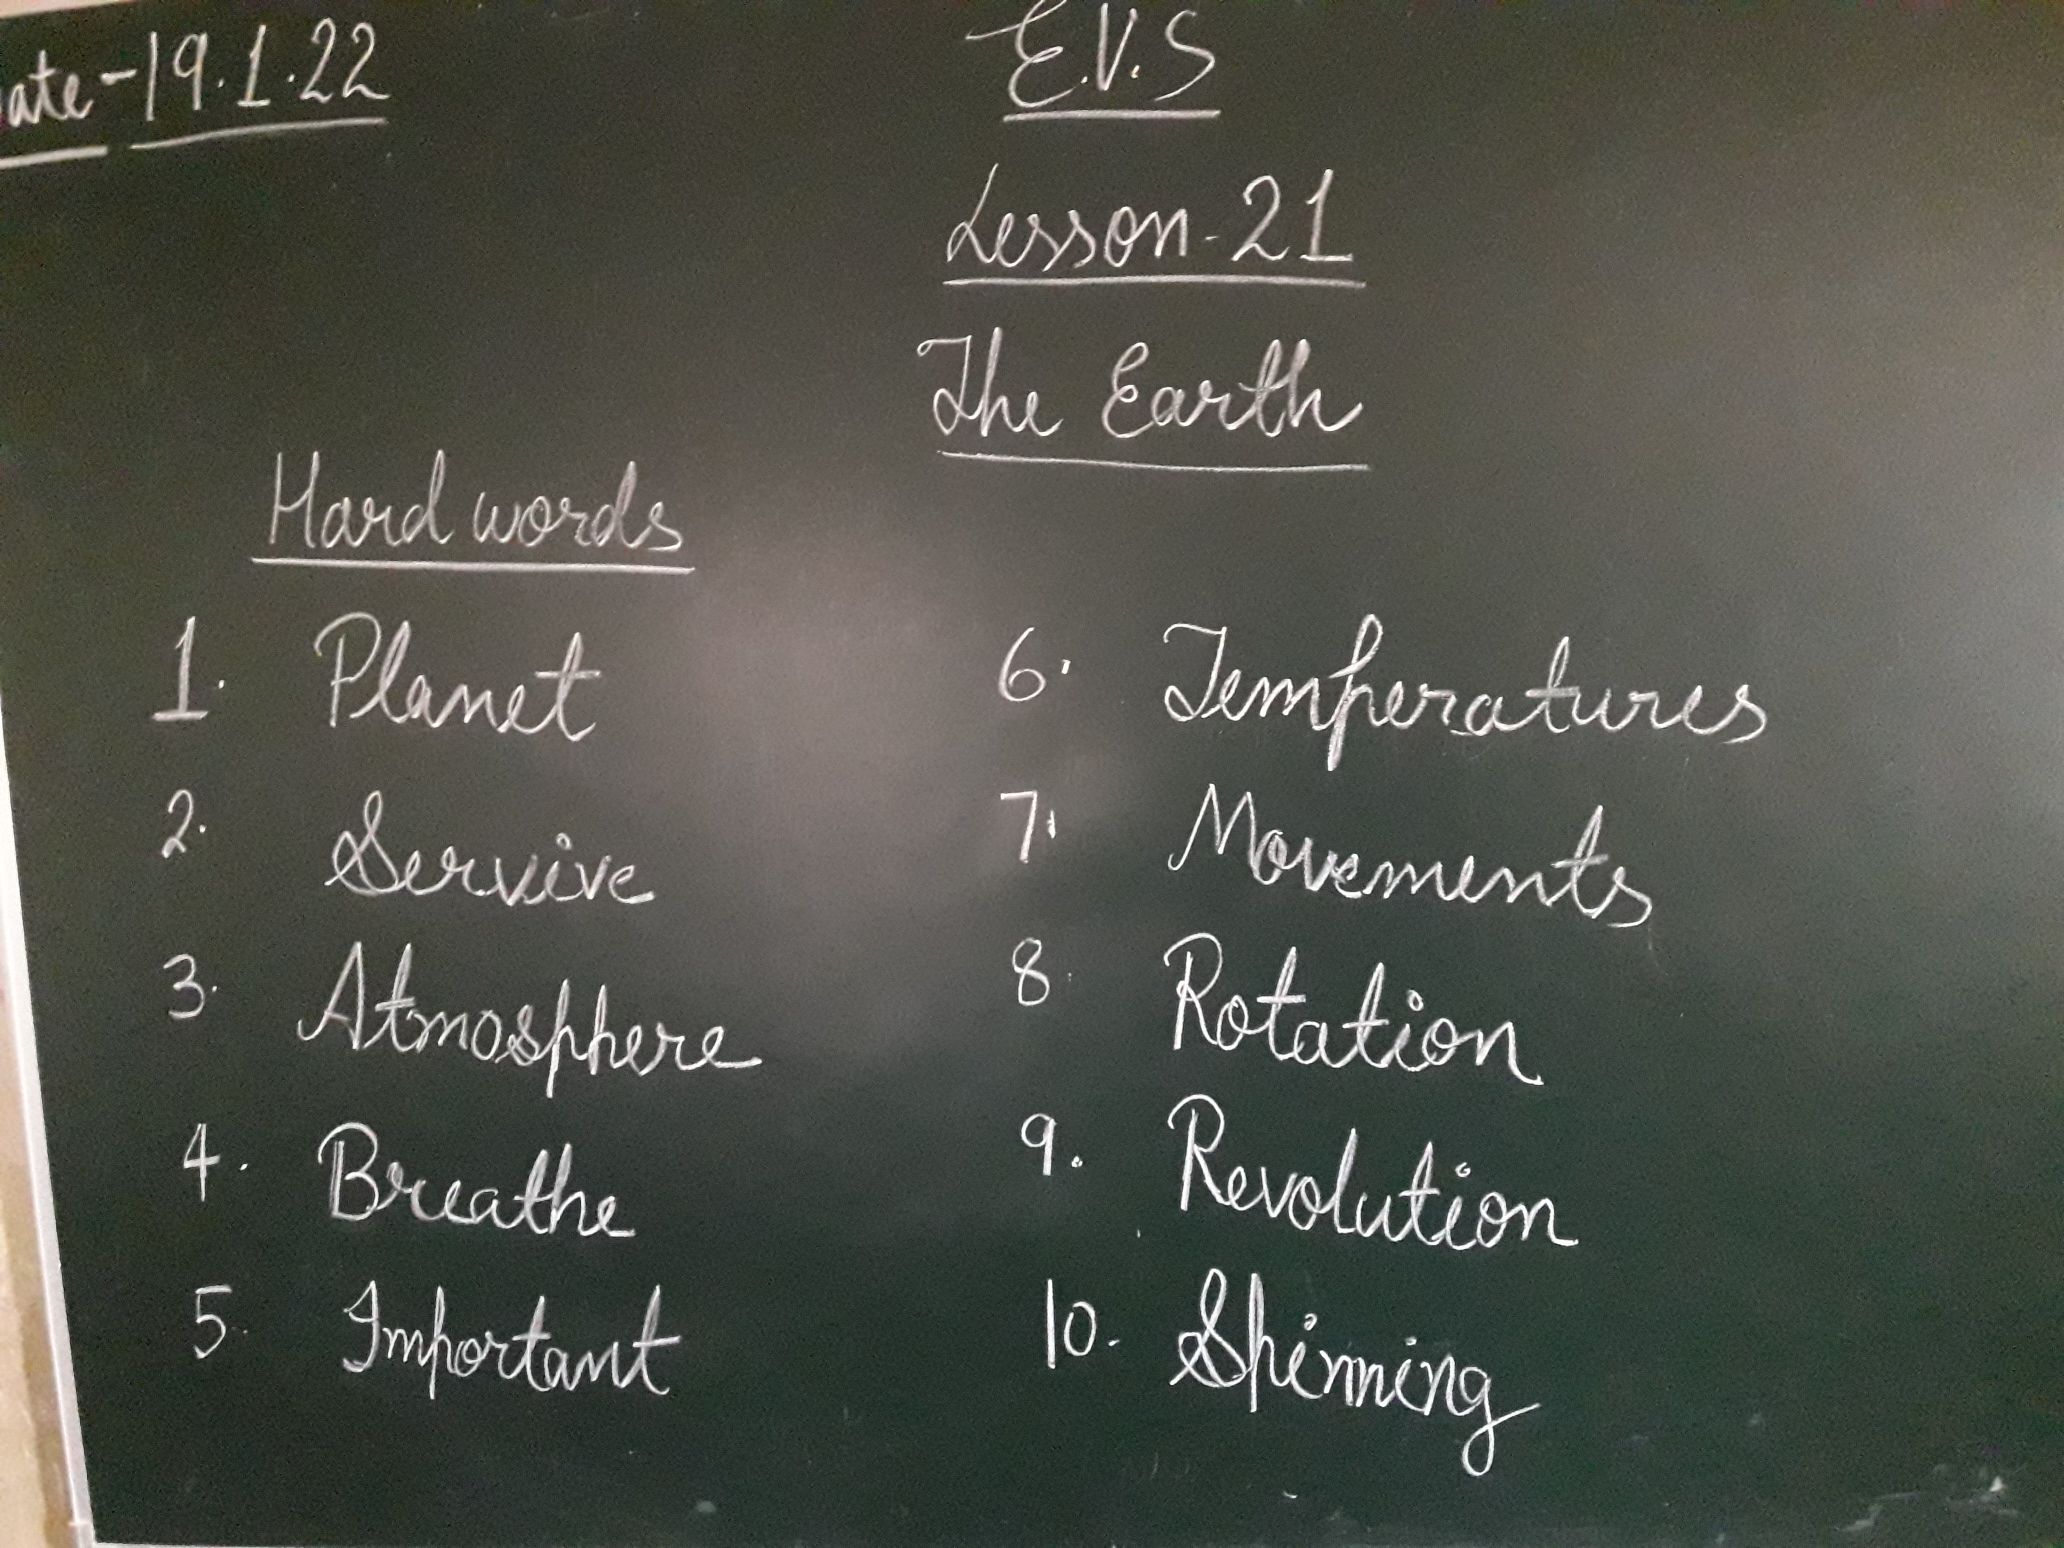 ate-19.1.22
E.V.S
Lesson-21
The Earth
Hard words
1. Planet
2. Servive
3. Atmosphere
4. Breathe
5. Important
6. Temperatures
7. Movements
8. Rotation
9. Revolution
10. Spinning